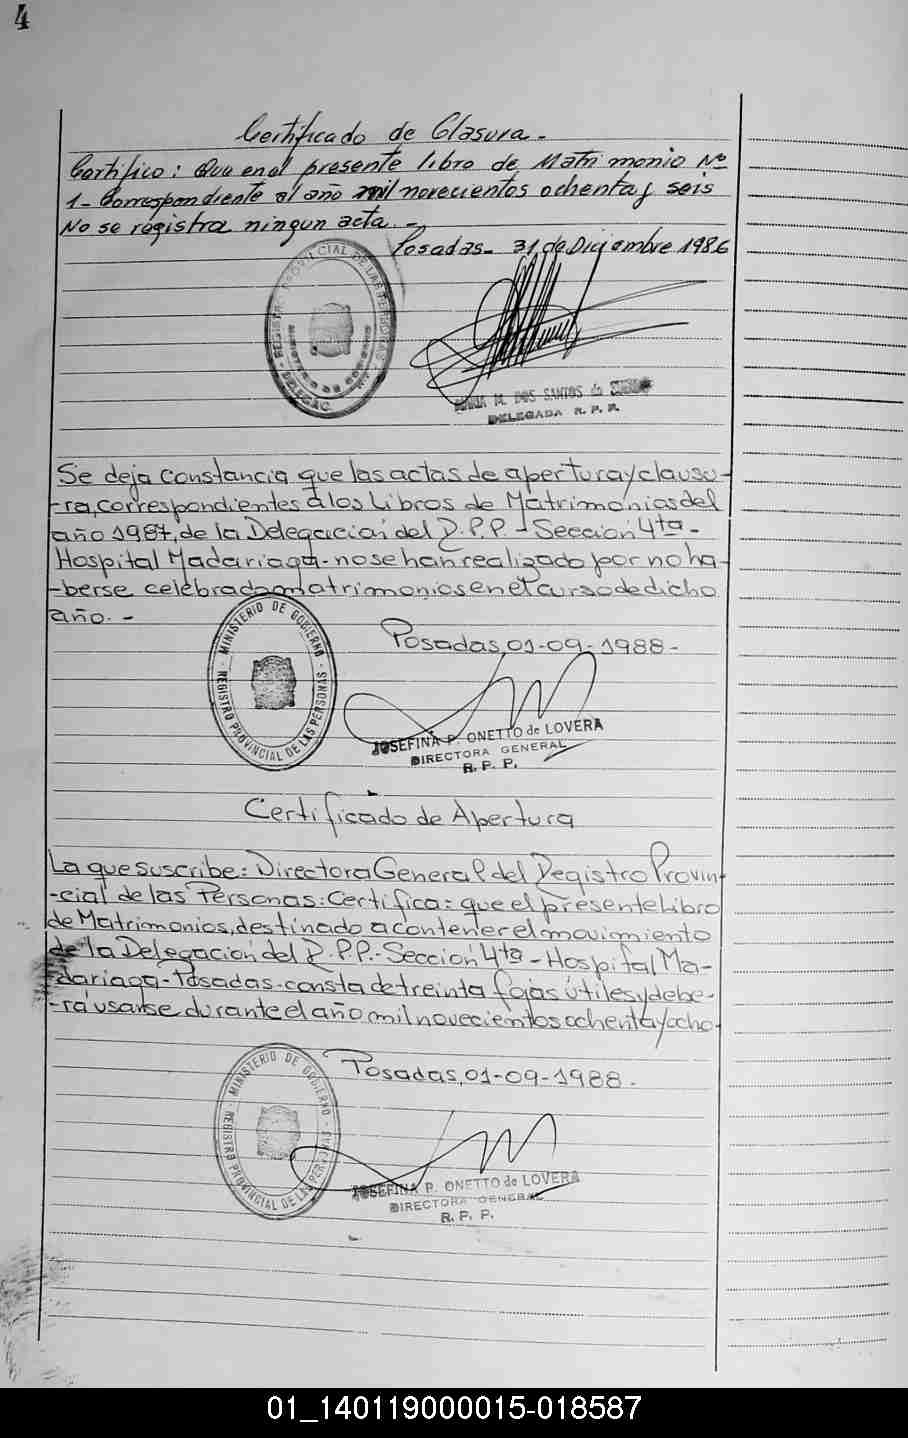 4
Certificado de Clasura.-
Certifico: Que en el presente libro de Matrimonio Nº
1- Correspondiente al año mil novecientos ochenta y seis
No se registra ningun acta.-
Posadas- 31 de Diciembre 1986
REGISTRO PROVINCIAL DE LAS PERSONAS
MINISTERIO DE GOBIERNO
DELEGAC
MARIA M. DOS SANTOS de
DELEGADA R. P. P.
Se deja constancia que las actas de apertura y clausu-
-ra, correspondientes a los Libros de Matrimonios del
año 1987, de la Delegación del R.P.P.- Sección 4ta-
Hospital Madariaga- no se han realizado por no ha-
-berse celebrado matrimonios en el curso de dicho
año.-
Posadas, 01-09-1988-
MINISTERIO DE GOBIERNO - REGISTRO PROVINCIAL DE LAS PERSONAS -
JOSEFINA P. ONETTO de LOVERA
DIRECTORA GENERAL
R. P. P.
Certificado de Apertura
La que suscribe: Directora General del Registro Provin-
-cial de las Personas: Certifica: que el presente Libro
de Matrimonios, destinado a contener el movimiento
de la Delegación del R.P.P.- Sección 4ta- Hospital Ma-
-dariaga- Posadas- consta de treinta fojas útiles y debe-
-rá usarse durante el año mil novecientos ochenta y ocho
Posadas, 01-09-1988-
MINISTERIO DE GOBIERNO - REGISTRO PROVINCIAL DE LAS PERSONAS -
JOSEFINA P. ONETTO de LOVERA
DIRECTORA GENERAL
R. P. P.
01_140119000015-018587